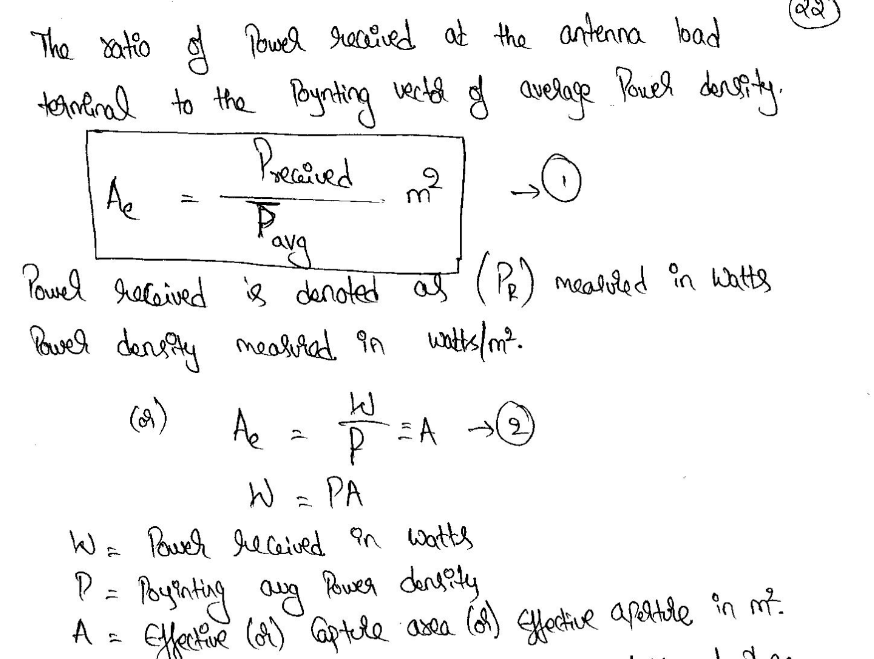 22
The ratio of Power received at the antenna load
terminal to the Poynting vector of average Power density.
Ae = Preceived / P̅avg m² → 1
Power received is denoted as (PR) measured in Watts
Power density measured in watts/m².
(or) Ae = W / P = A → 2
W = PA
W = Power received in watts
P = Poyinting avg Power density
A = Effective (or) Capture area (or) Effective aperture in m².